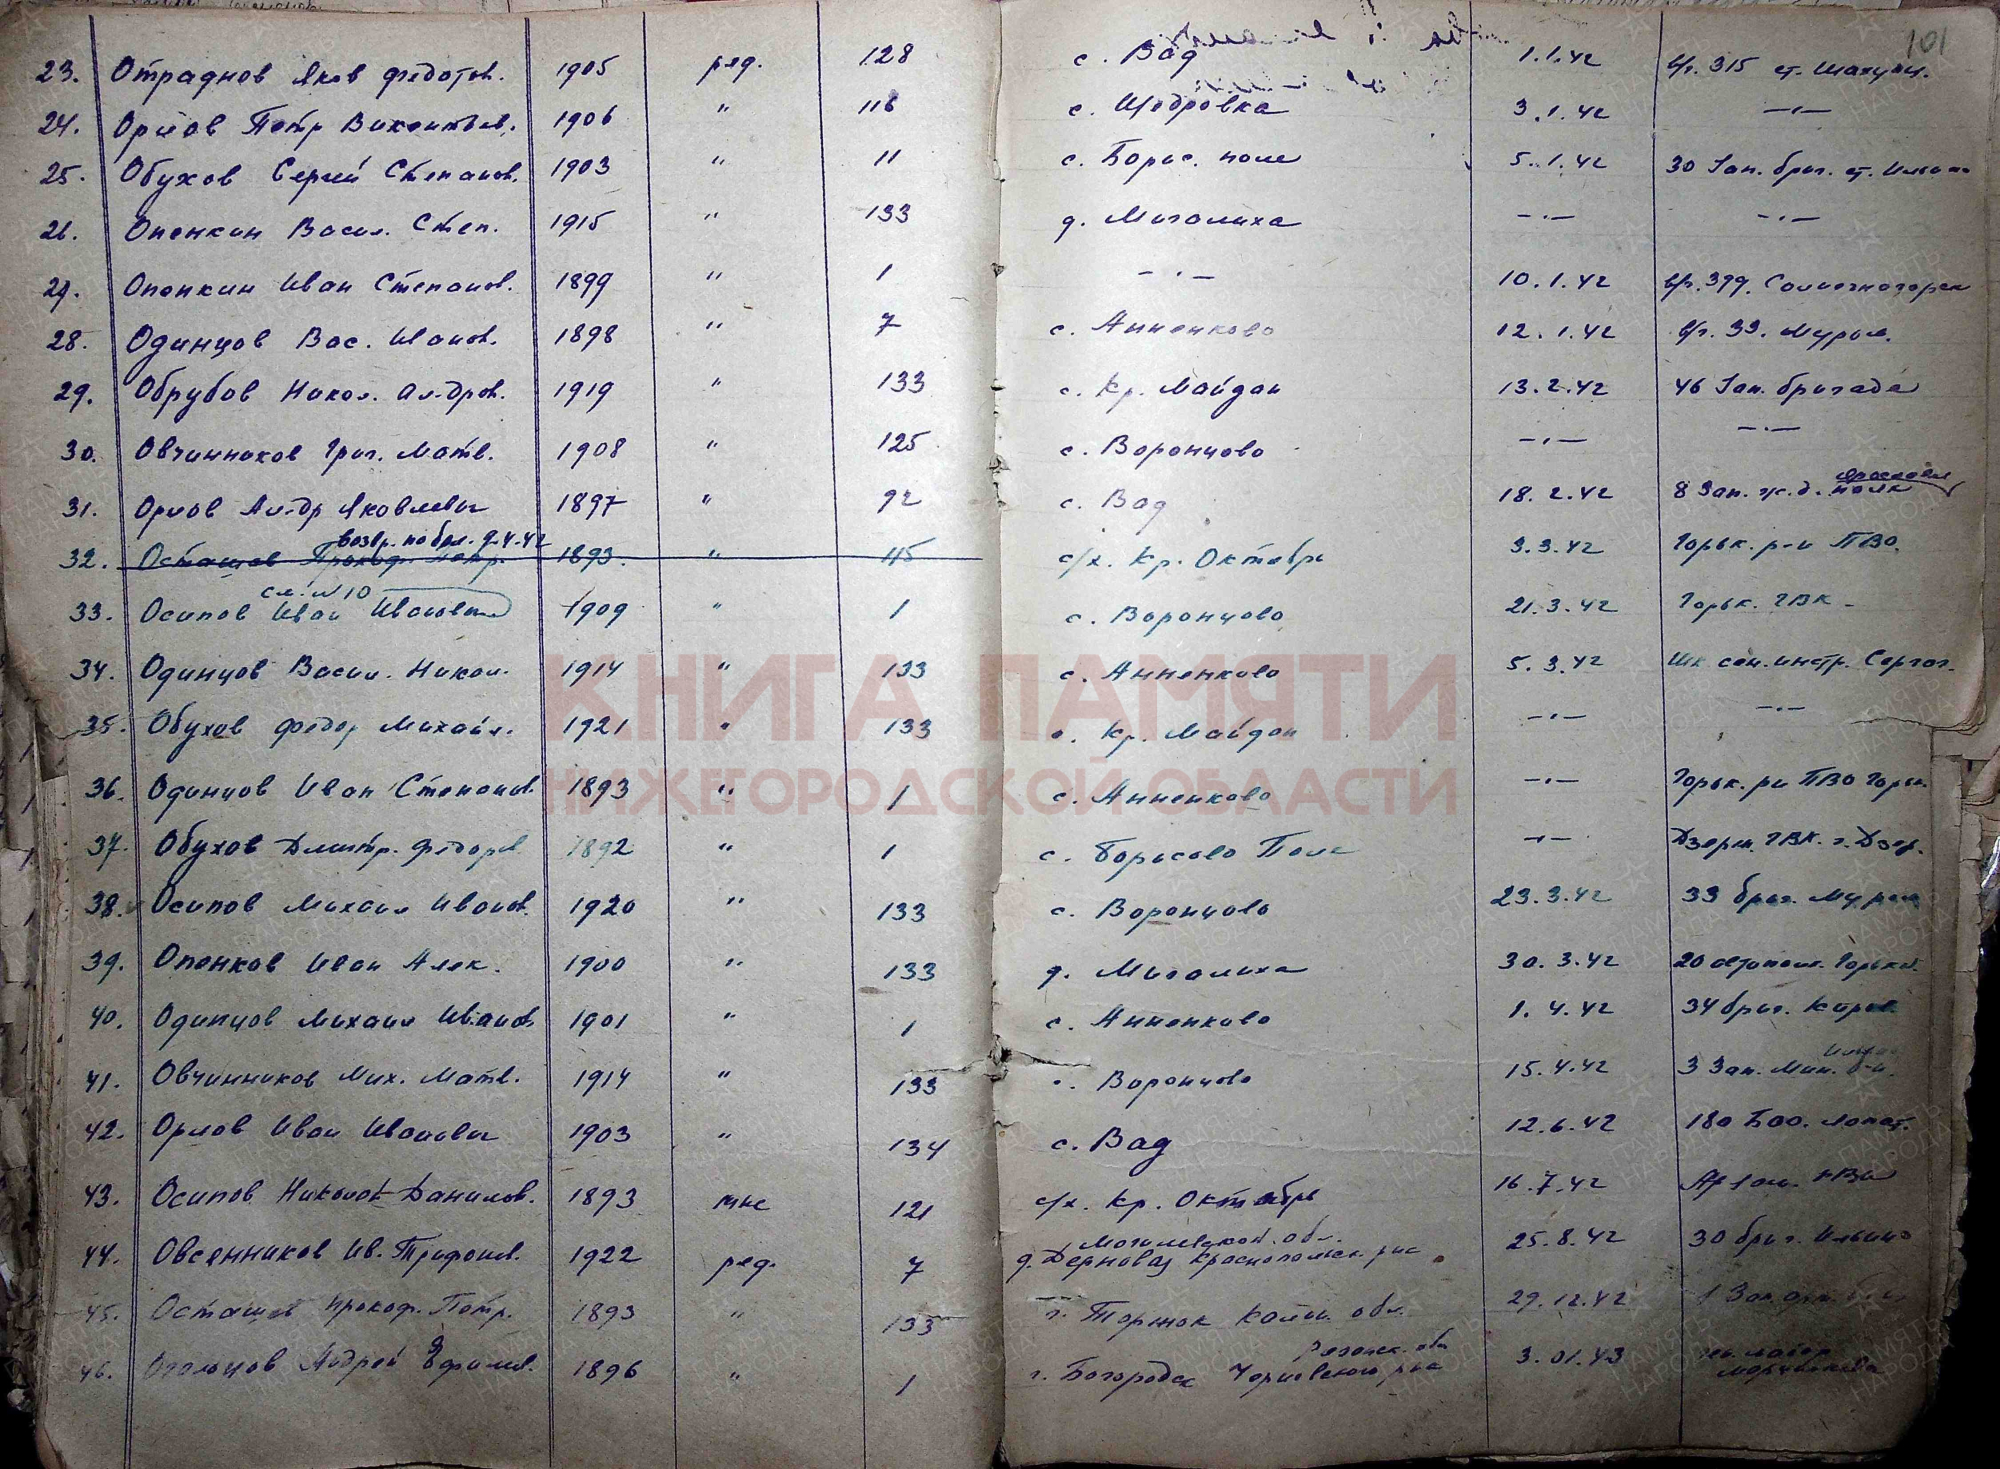 101
23. Отраднов Яков Федотов. 1905 ряд. 128 с. Вад 1.1.42 в/ч. 315 ст. Шахунь.
24. Орлов Петр Викентьев. 1906 " 116 с. Щедровка 3.1.42 —·—
25. Обухов Сергей Степанов. 1903 " 11 с. Борис. поле 5.1.42 30 Зап. бриг. ст. Ильино
26. Опенкин Васил. Степ. 1915 " 133 д. Миголиха —·— —·—
27. Опенкин Иван Степанов. 1899 " 1 —·— 10.1.42 в/ч. 399. Солнечногорск
28. Одинцов Вас. Иванов. 1898 " 7 с. Анненково 12.1.42 в/ч. 33. Муром.
29. Обрубов Никол. Ал-дров. 1919 " 133 с. Кр. Майдан 13.2.42 46 Зап. бригада
30. Овчинников Григ. Матв. 1908 " 125 с. Воронцово —·— —·—
31. Орлов Ал-др Яковлевич 1897 " 92 с. Вад 18.2.42 8 Зап. ж.д. полк
возвр. по бол. 9.4.42
32. Осташов Прокоф. Петр. 1893. " 115 с/х. Кр. Октябрь 3.3.42 Горьк. р-н ПВО.
см. №10
33. Осипов Иван Иванович 1909 " 1 с. Воронцово 21.3.42 Горьк. ГВК.
34. Одинцов Васил. Никол. 1914 " 133 с. Анненково 5.3.42 Шк. сан. инстр. Сергач.
35. Обухов Федор Михайл. 1921 " 133 с. Кр. Майдан —·— —·—
КНИГА ПАМЯТИ
НИЖЕГОРОДСКОЙ ОБЛАСТИ
36. Одинцов Иван Степанов. 1893 " 1 с. Анненково —·— Горьк. рн ПВО Горьк.
37. Обухов Дмитр. Федоров. 1892 " 1 с. Борисово Поле —·— Дзерж. ГВК. г. Дзер.
38. Осипов Михаил Иванов. 1920 " 133 с. Воронцово 23.3.42 33 бриг. Муром
39. Опенков Иван Алек. 1900 " 133 д. Миголиха 30.3.42 20 Горьк.
40. Одинцов Михаил Иванов 1901 " 1 с. Анненково 1.4.42 34 бриг. Киров.
41. Овчинников Мих. Матв. 1914 " 133 с. Воронцово 15.4.42 3 Зап. Мин. б-н.
42. Орлов Иван Иванович 1903 " 134 с. Вад 12.6.42 180 Бао.
43. Осипов Николай Данилов. 1893 мнс 121 с/х. Кр. Октябрь 16.7.42
Могилевской обл.
44. Овсенников Ив. Трифонов. 1922 ряд. 7 д. Дерновая Краснопольск. р-на 25.8.42 30 бриг. Ильино
45. Осташов Прокоф. Петр. 1893 " 133 г. Торжок Калин. обл. 29.12.42 1 Зап.
Рязанск. обл
46. Огольцов Андрей Ефимов. 1896 " 1 г. Богородск 3.01.43